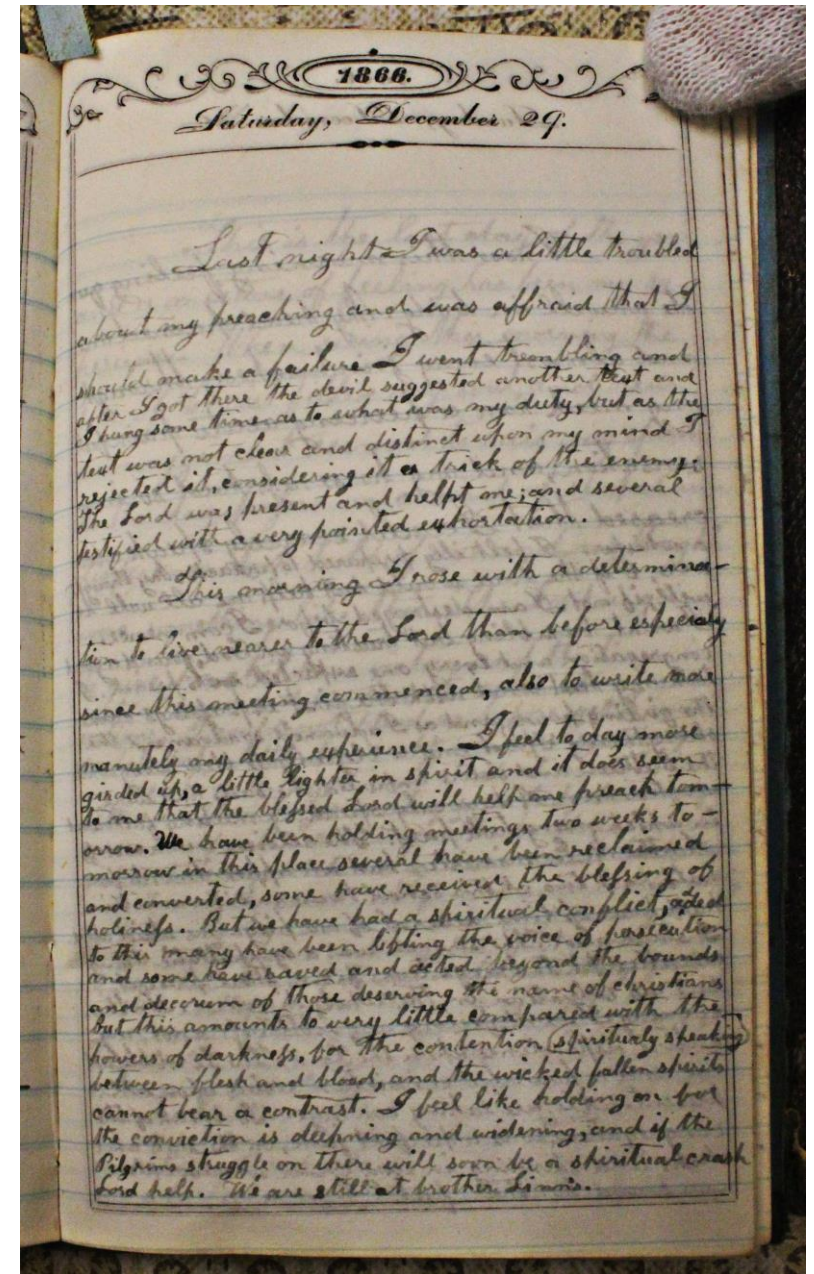 1866.
Saturday, December 29.
Last night I was a little troubled
about my preaching and was affraid that I
should make a failure I went trembling and
after I got there the devil suggested another text and
I hung some time as to what was my duty, but as the
text was not clear and distinct upon my mind I
rejected it, considering it a trick of the enemy.
The Lord was present and helpt me; and several
testified with a very pointed exhortation.
This morning I rose with a determina-
tion to live nearer to the Lord than before especialy
since this meeting commenced, also to write more
manutely my daily experience. I feel to day more
girded up, a little lighter in spirit and it does seem
to me that the blessed Lord will help me preach tom-
orrow. We have been holding meetings two weeks to-
morrow in this place several have been reclaimed
and converted, some have received the blessing of
holiness. But we have had a spiritual conflict, aded
to this many have been lifting the voice of persecution
and some have raved and acted beyond the bounds
and decorum of those deserving the name of christians
but this amounts to very little compared with the
powers of darkness, for the contention (spiritualy speaking)
between flesh and blood, and the wicked fallen spirits
cannot bear a contrast. I feel like holding on for
the conviction is deepning and widening, and if the
Pilgrims struggle on there will soon be a spiritual crash
Lord help. We are still at brother Linn's.